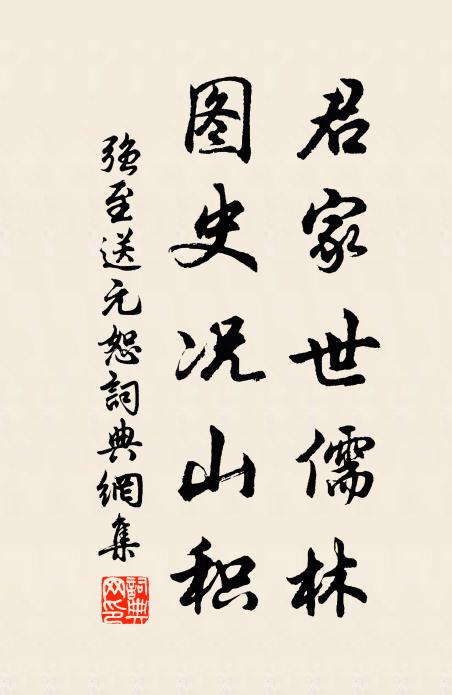 君家世儒林
图史况山积
强至送元恕詞典網集
詞典网印